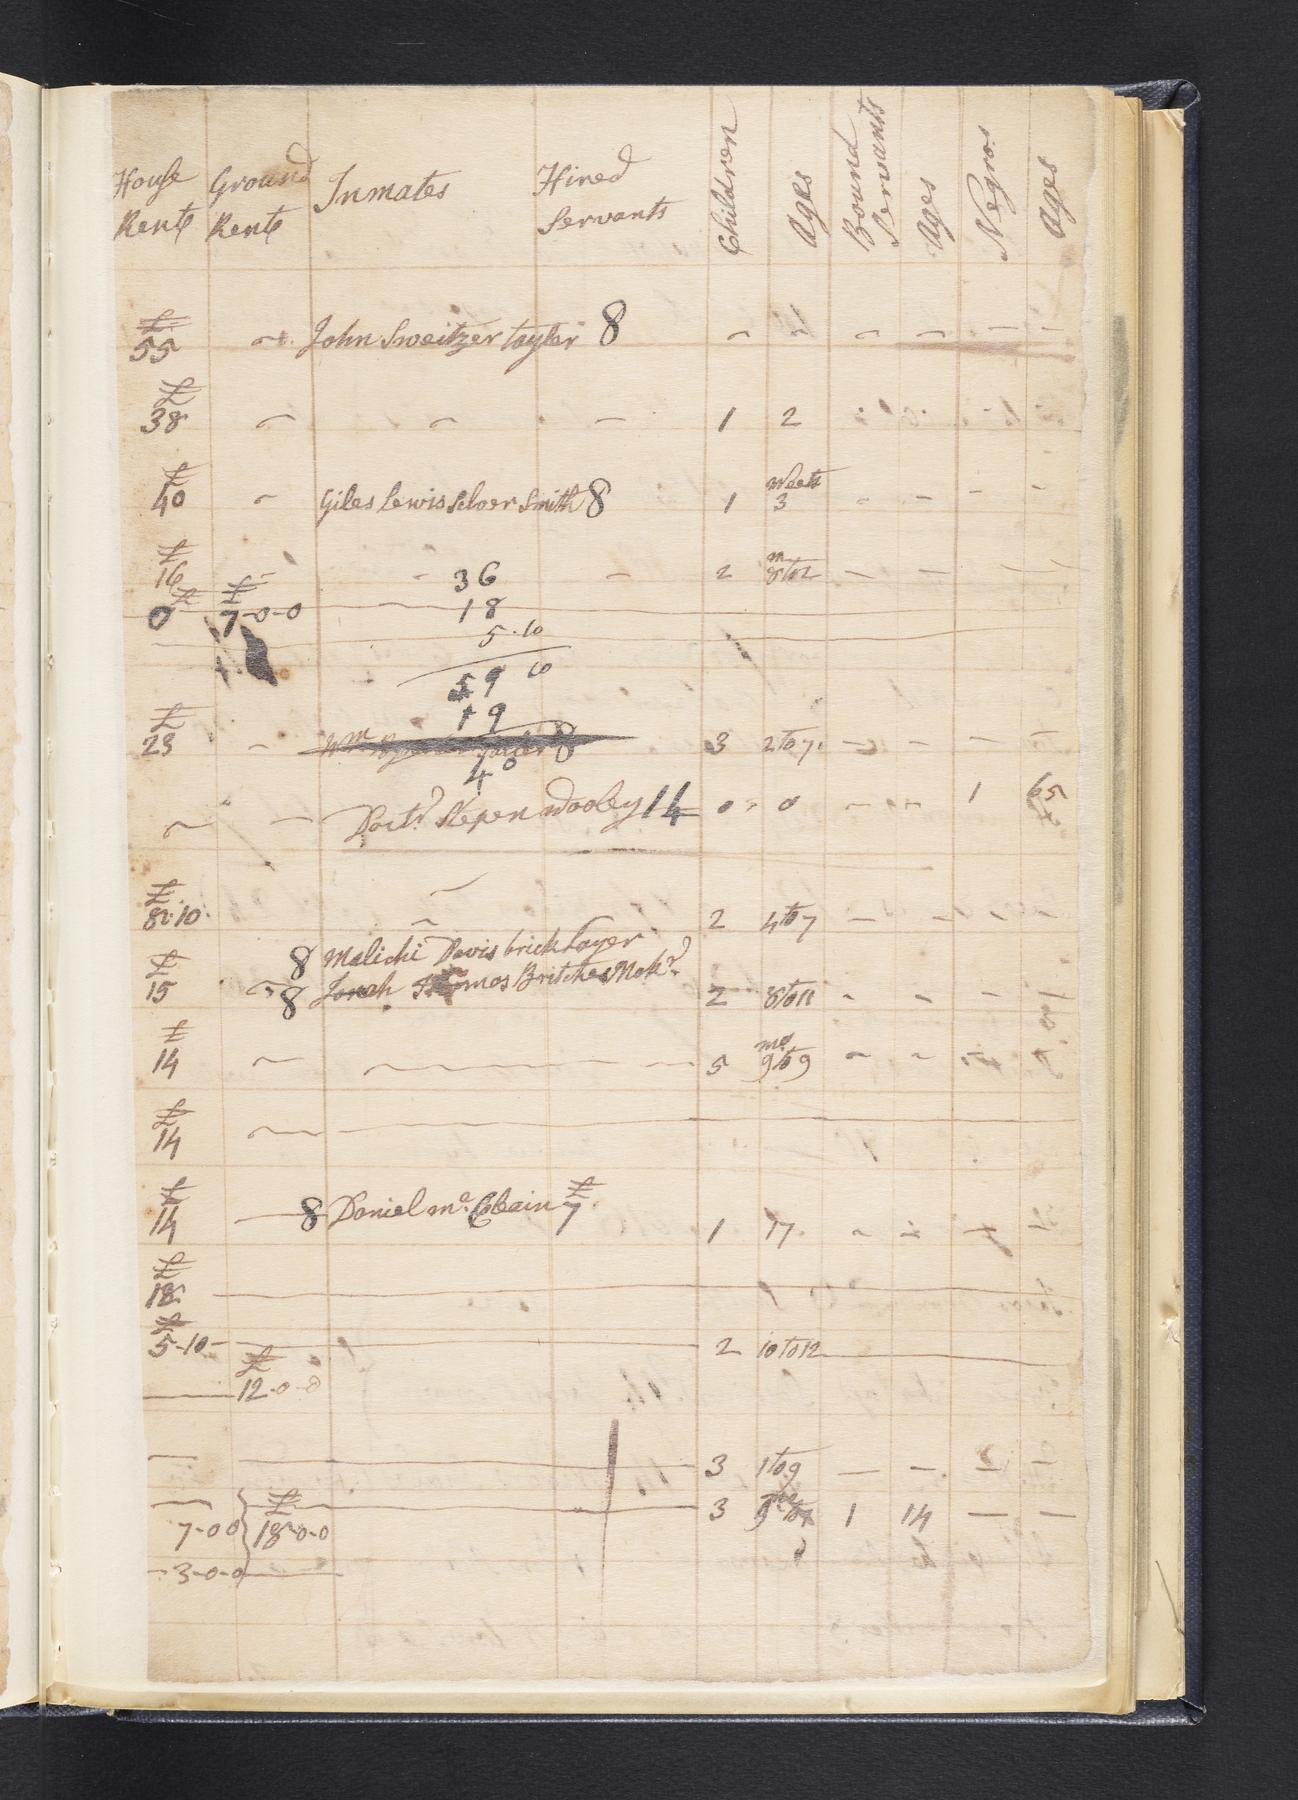 House Rent Ground Rent Inmates Hired Servants Children Ages Bound Servants Ages Negros Ages
£ 55 ~ John Sweitzer Taylor 8 ~ ~ ~ — — —
£ 38 ~ ~ ~ 1 2
£ 40 ~ Giles Lewis Silver Smith 8 1 weeks 3 - - - -
£ 16 - - 36 - 2 m 8 to 2 — — — —
0 £ £ 7-0-0 18
5.10
59 10
19
£ 23 ~ Wm 8 3 2 to 7 — - - -
40
~ — Doctr Stepen Wooley 14 0 - 0 — — 1 65
£ 8.10. ~ 2 4 to 7 — - - -
8 Malichi Davis brick Layer
£ 15 ~ 8 Jonah Thomas Britches Makr. 2 8 to 11 - - -
£ 14 ~ ~ 5 mo 9 to 9 ~ ~
£ 14 ~
£ 14 — 8 Daniel mc Cleain £ 7 1 17 ~
£ 18
£ 5-10- 2 10 to 12
£ 12-0-0
— 3 1 to 9 — — — —
£ 3 1 14 — —
7-0 0 } 18-0-0
3-0-0